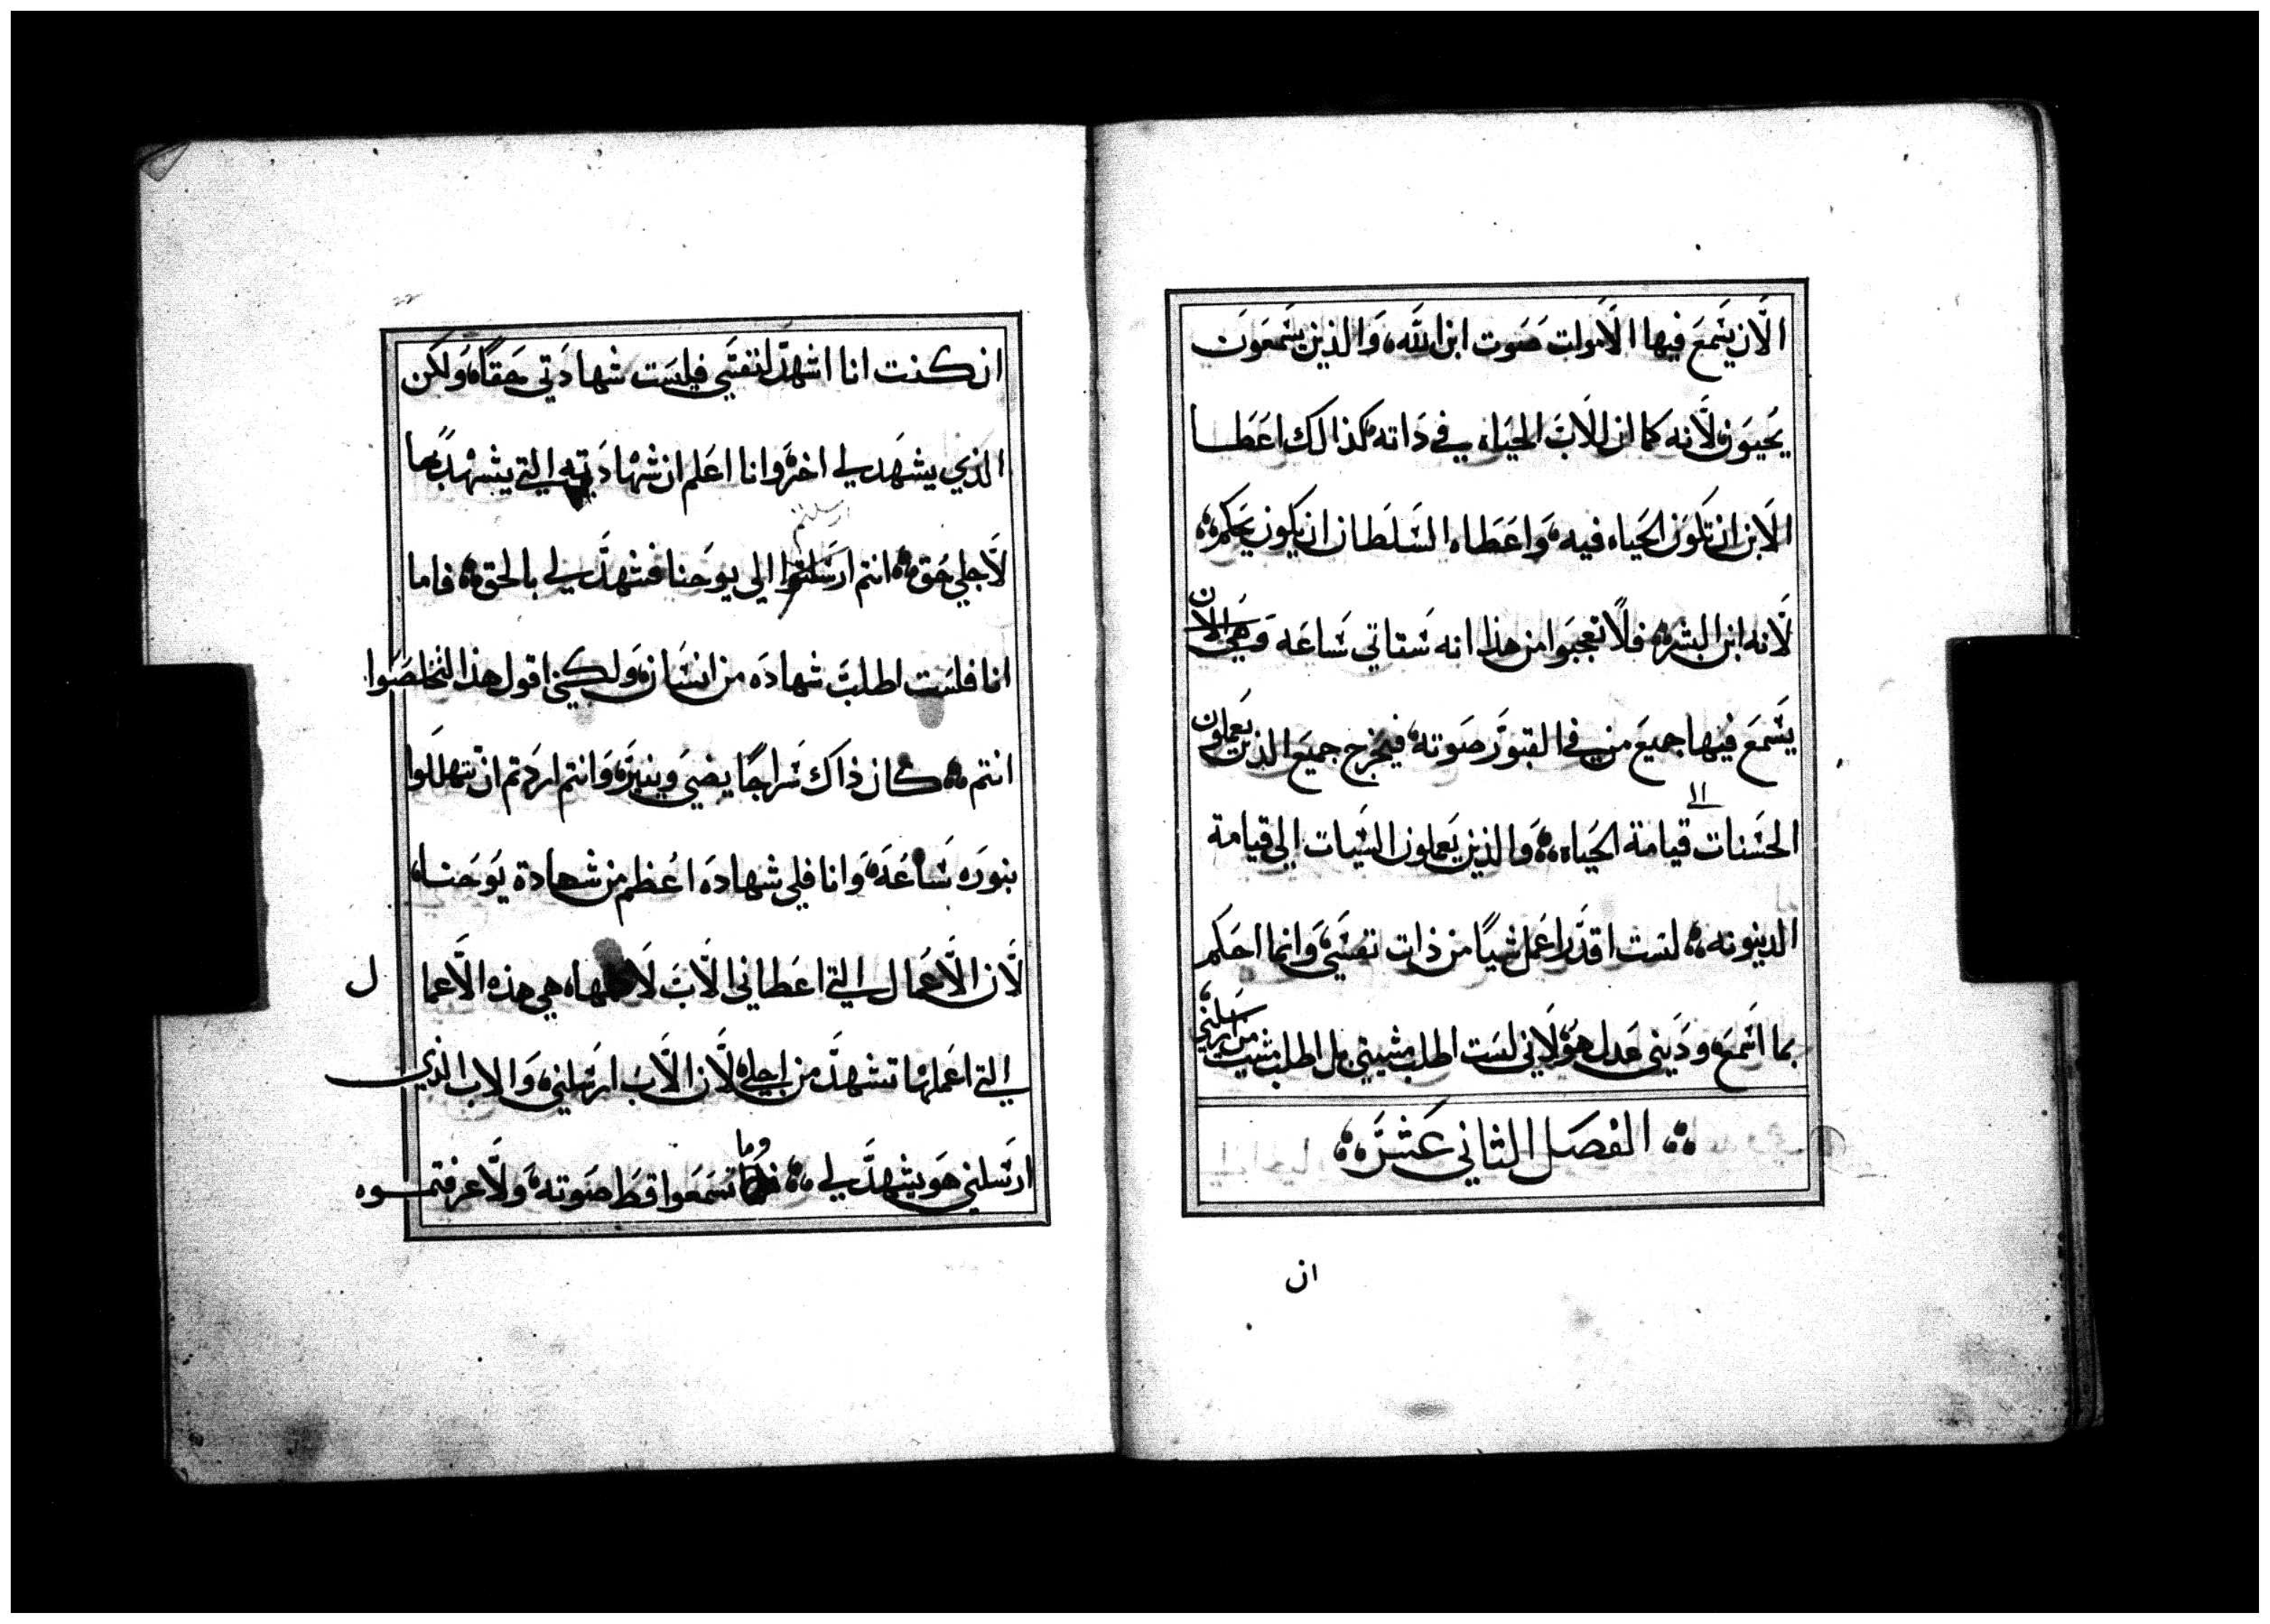 الان يسمع فيها الاموات صوت ابن الله، والذين يسمعون
يحيون، لانه كما ان للاب الحياه في داته، كذالك اعطا
الابن ان تكون الحياه فيه، واعطاه السلطان ان يكون يحكم،
لانه ابن البشر، فلا تعجبوا من هذا انه ستاتي ساعه وهي الان
يسمع فيها جميع من في القبور صوته، فيخرج جميع الذين يعملون
الحسنات الى قيامة الحياه، والذين يعملون السيات الي قيامة
الدينونه، لست اقدر اعمل شيا من ذات نفسي، وانما احكم
بما اسمع، وديني عدل هو، لاني لست اطلب مشيتي بل اطلب مشية من ارسلني،
الفصل الثاني عشر
ان
ان كنت انا اشهد لنفسي فليست شهادتي حقا، ولكن
الذي يشهد لي اخر، وانا اعلم ان شهادته التي يشهد بها
لاجلي حق، انتم ارسلتم الي يوحنا فشهد لي بالحق، فاما
انا فلست اطلب شهاده من انسان، ولكني اقول هذا لتخلصوا
انتم، كان ذاك سراجا يضي وينير، وانتم اردتم ان تتهللوا
بنوره ساعه، وانا فلي شهاده اعظم من شهادة يوحنا،
لان الاعمال التي اعطاني الاب لاكملها، هي هذه الاعمال
التي اعملها تشهد من اجلي، لان الاب ارسلني، والاب الذي
ارسلني هو يشهد لي، وما تسمعوا قط صوته، ولا عرفتموه